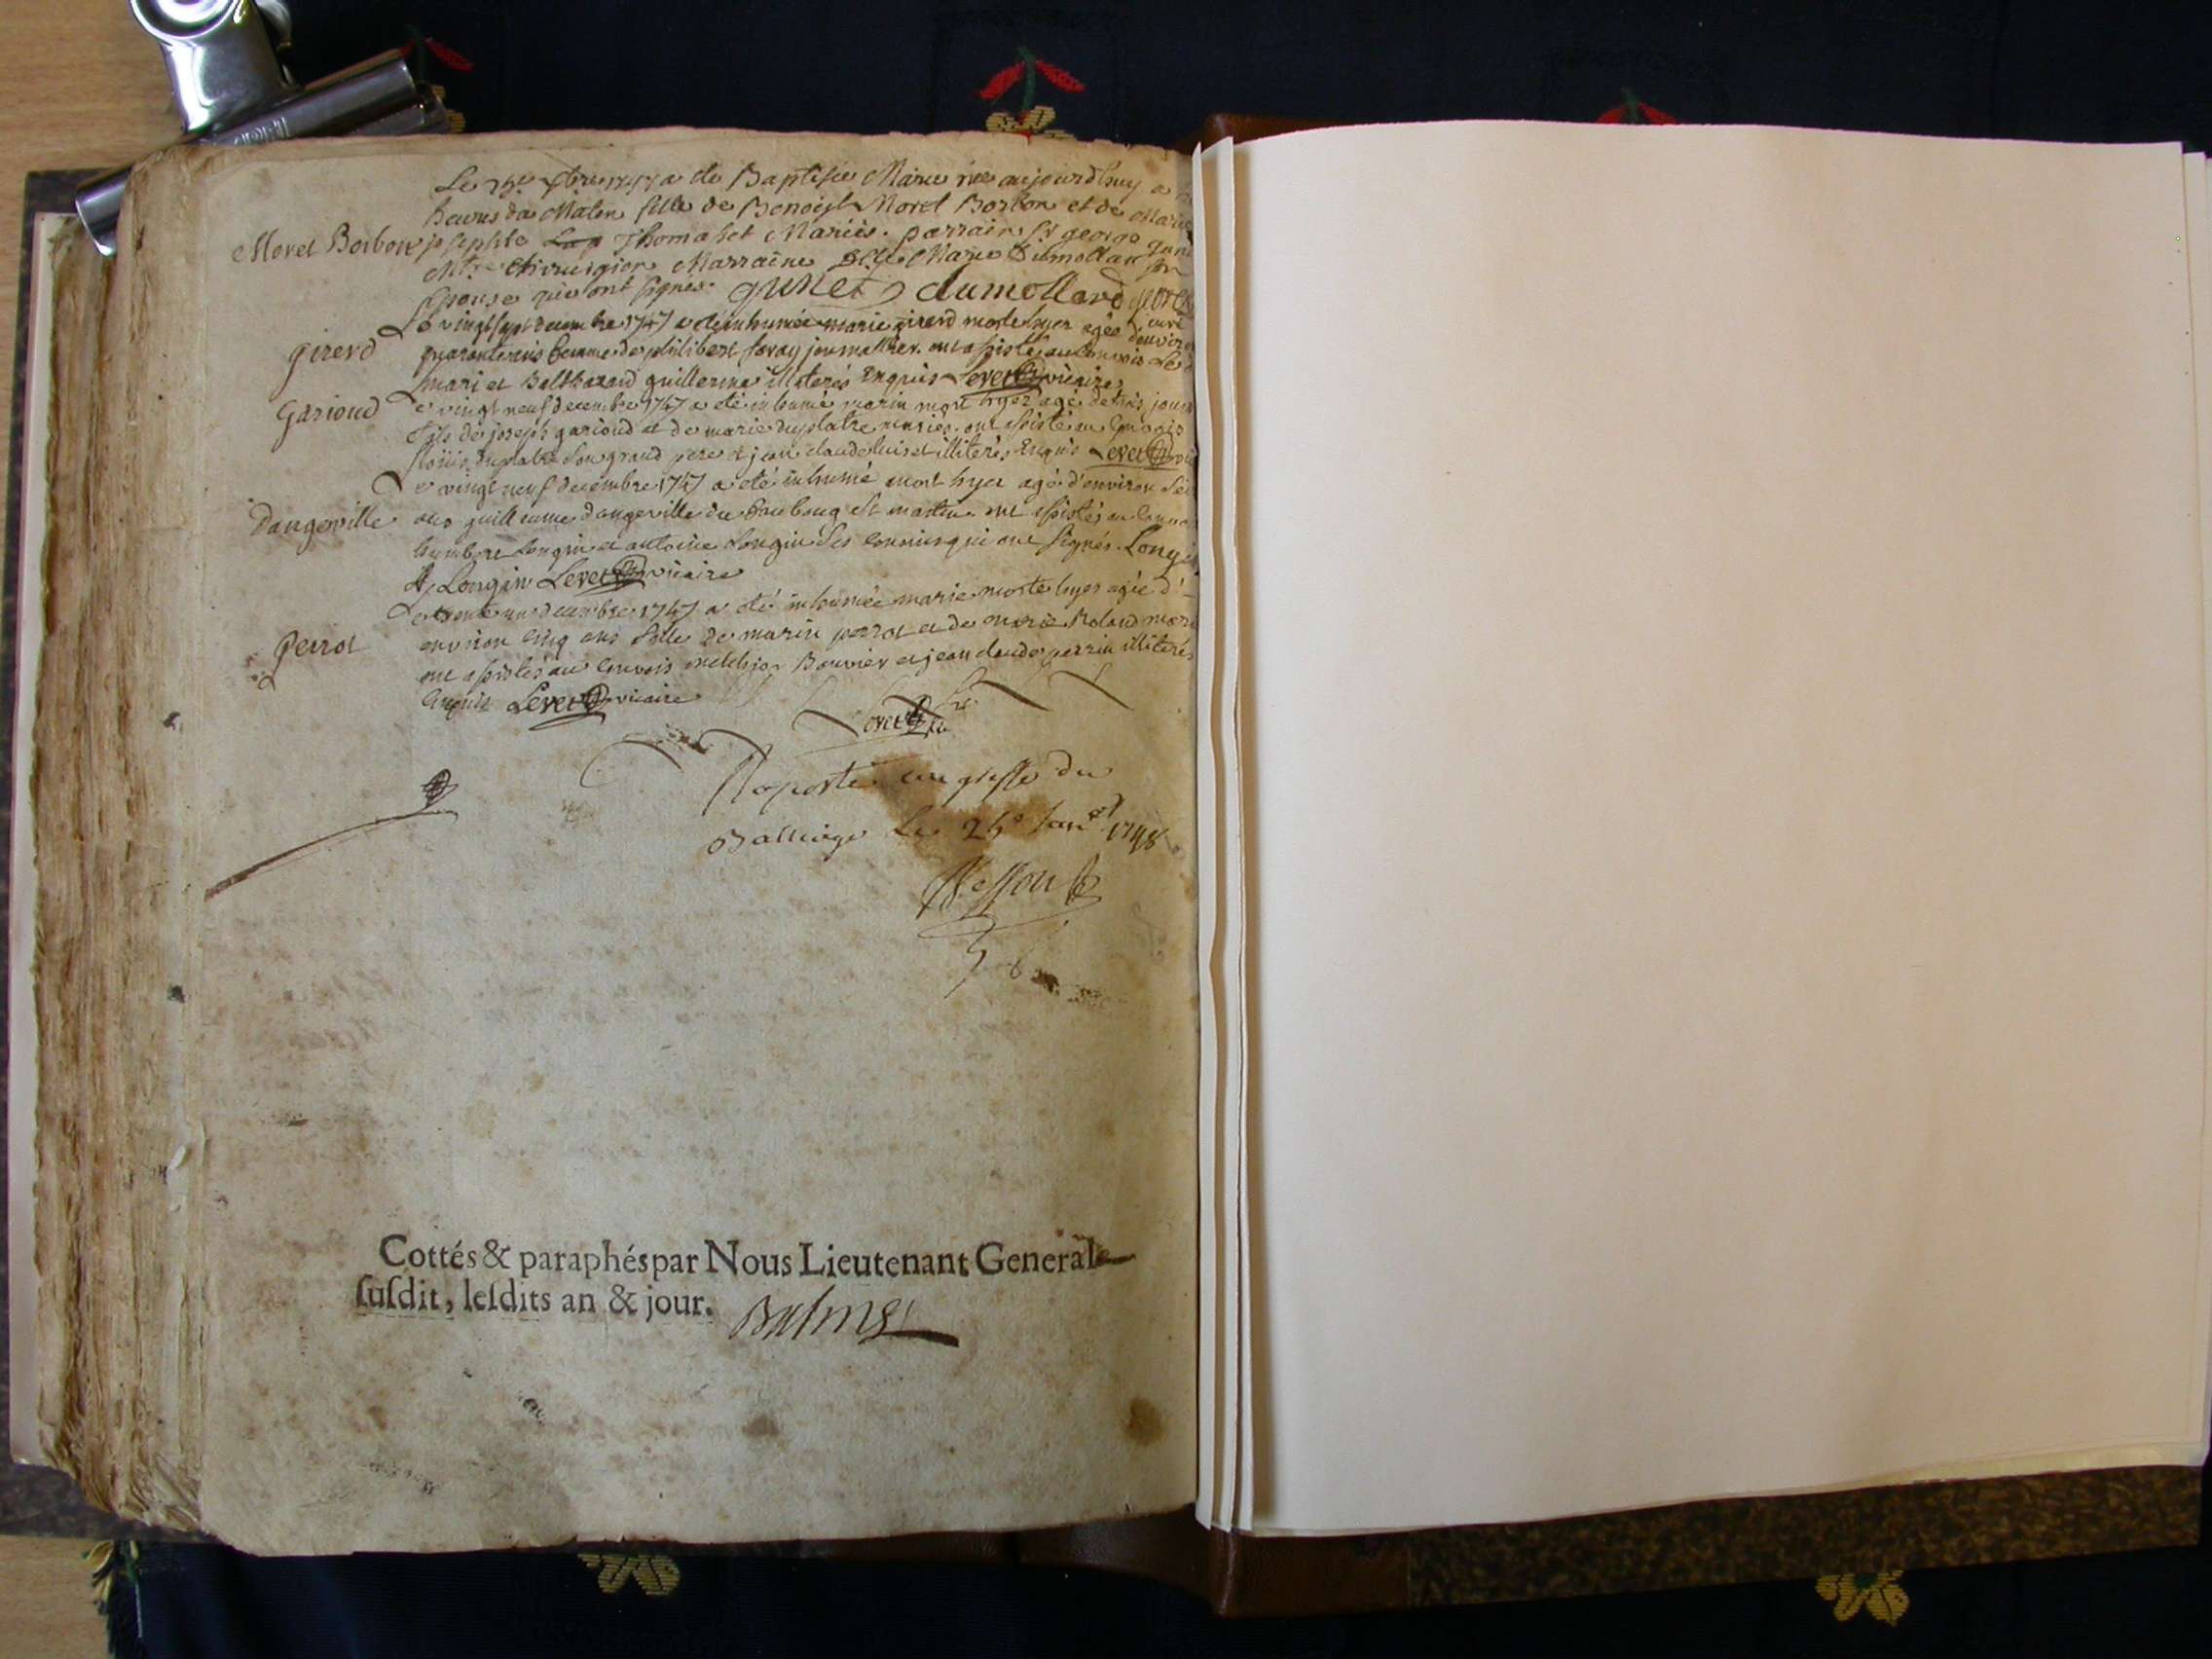 Le 26e Xbre 1747 a été Baptisée Marie née aujourd'huy a
heures du Matin fille de Benoist Moret Borbon et de Marie
Moret Borbon josephte Thomaset Mariés. parrain Sr george gunet
Mtre Chirurgien Marraine Dlle Marie Dumollard son
Epouse qui ont signés. gunet dumollard
curé
girerd
Le vingt sept decembre 1747 a été inhumée marie girerd morte hyer agée d'environ
quarante ans femme de philibert favay journallier. ont assisté au convois Le d
mari et Balthazard guillerme illiterés Enquis Levet vicaire
garioud
Le vingt neuf decembre 1747 a été inhumé marin mort hyer agé de trois jours
fils de joseph garioud et de marie duplatre mariés. ont assisté au convois
Loüis duplatre son grand pere et jean claude illiterés Enquis Levet vic
Le vingt neuf decembre 1747 a été inhumé mort hyer agé d'environ
Dangeville
ans guillaume dangeville du faubourg st martin. ont assistés au convois
humbert Longin et antoine Longin ses cousins qui ont signés. Longin
A, Longin Levet vicaire
Le trente un decembre 1747 a été inhumée marie morte hyer agée d'-
perrot
environ cinq ans fille de marin perrot et de marie Roland mariés
ont assistés au convois melchior Bouvier et jean claude perrin illiterés
Enquis Levet vicaire
Levet
Raporté au greffe du
Balliage Le 25e Janer 1748
Cottés & paraphés par Nous Lieutenant General
ſuſdit, leſdits an & jour. Balme